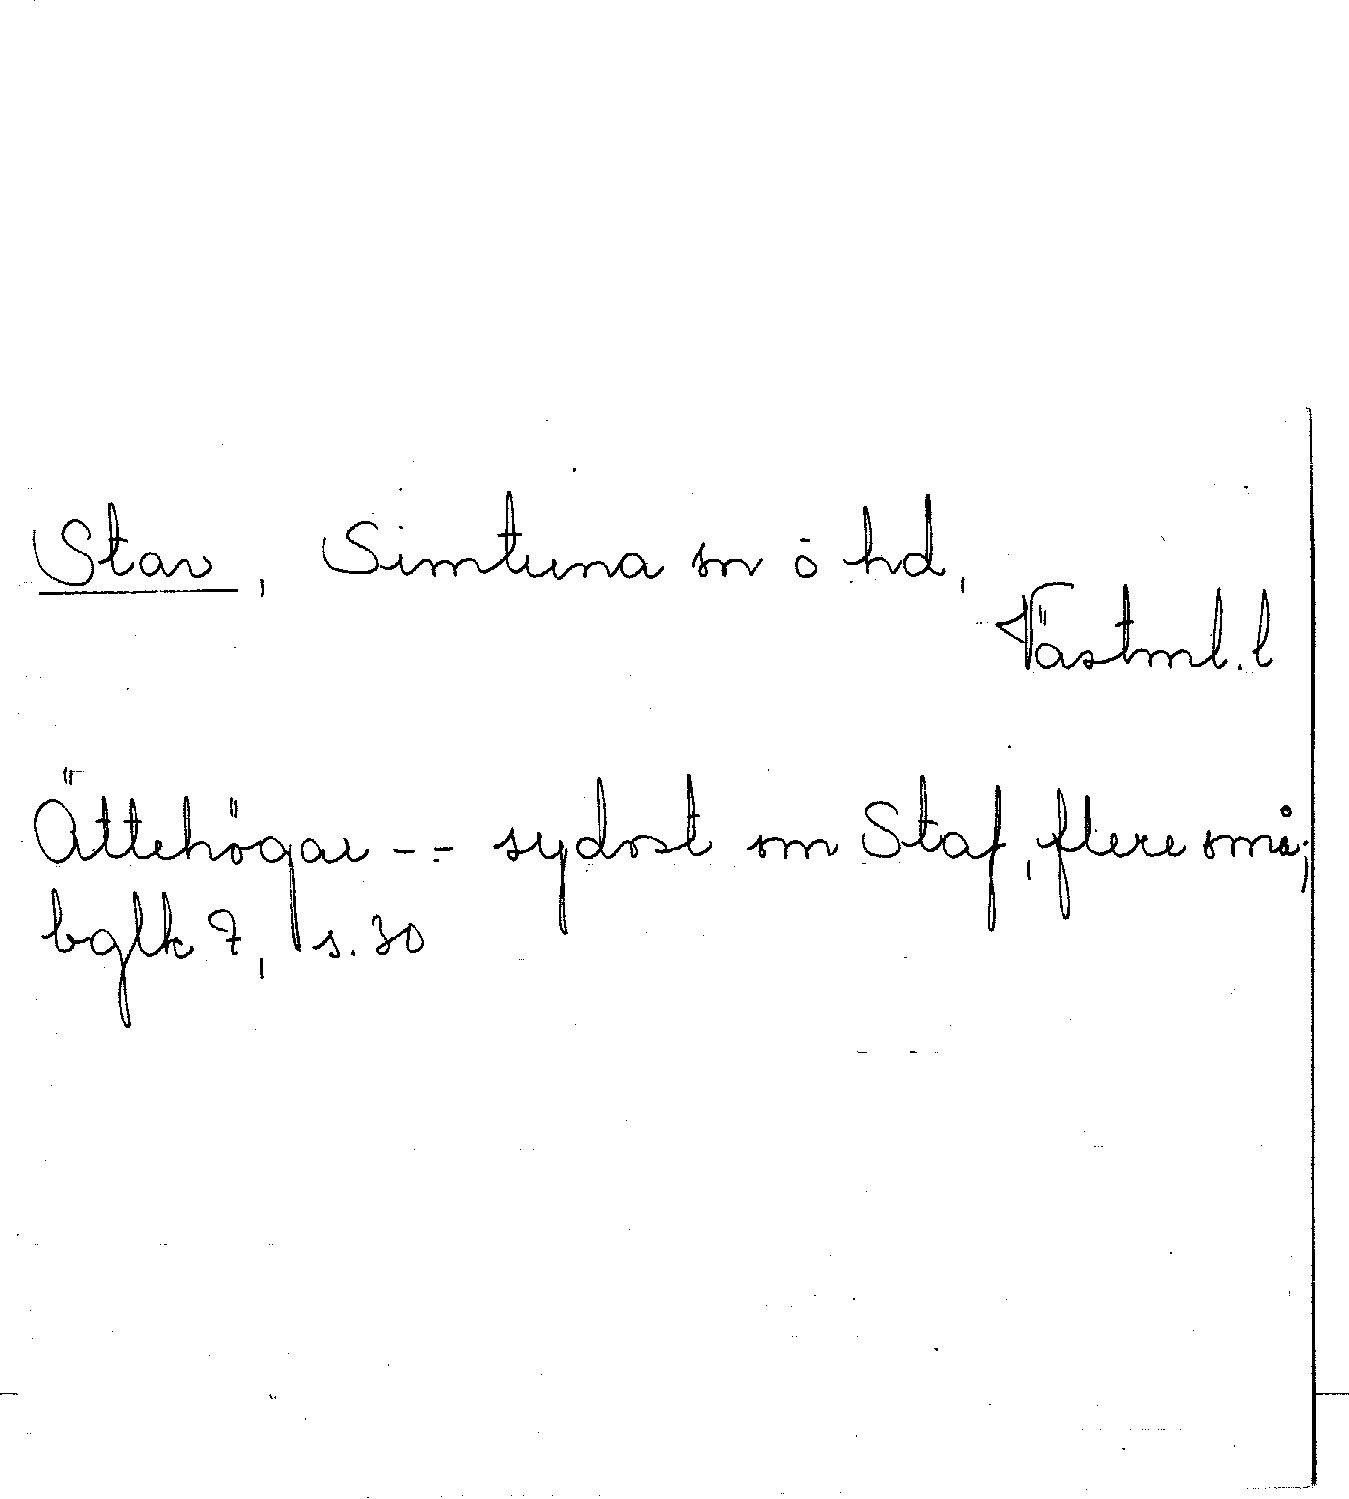 Stav, Simtuna sn o hd,
Västml. l
Ättehögar -- sydost om Staf, flere små;
bglk 7, s. 30